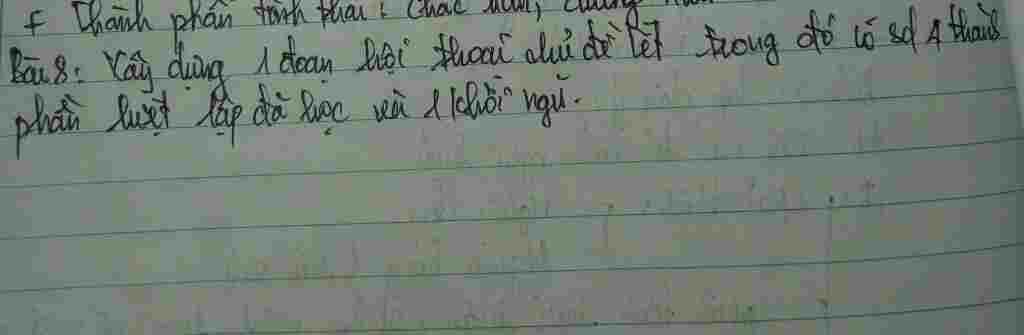 + Thành phần tình thái: Chắc chắn,
Bài 8: Xây dựng 1 đoạn hội thoại chủ đề Tết trong đó có sd 1 thành
phần biệt lập đã học và 1 khởi ngữ.